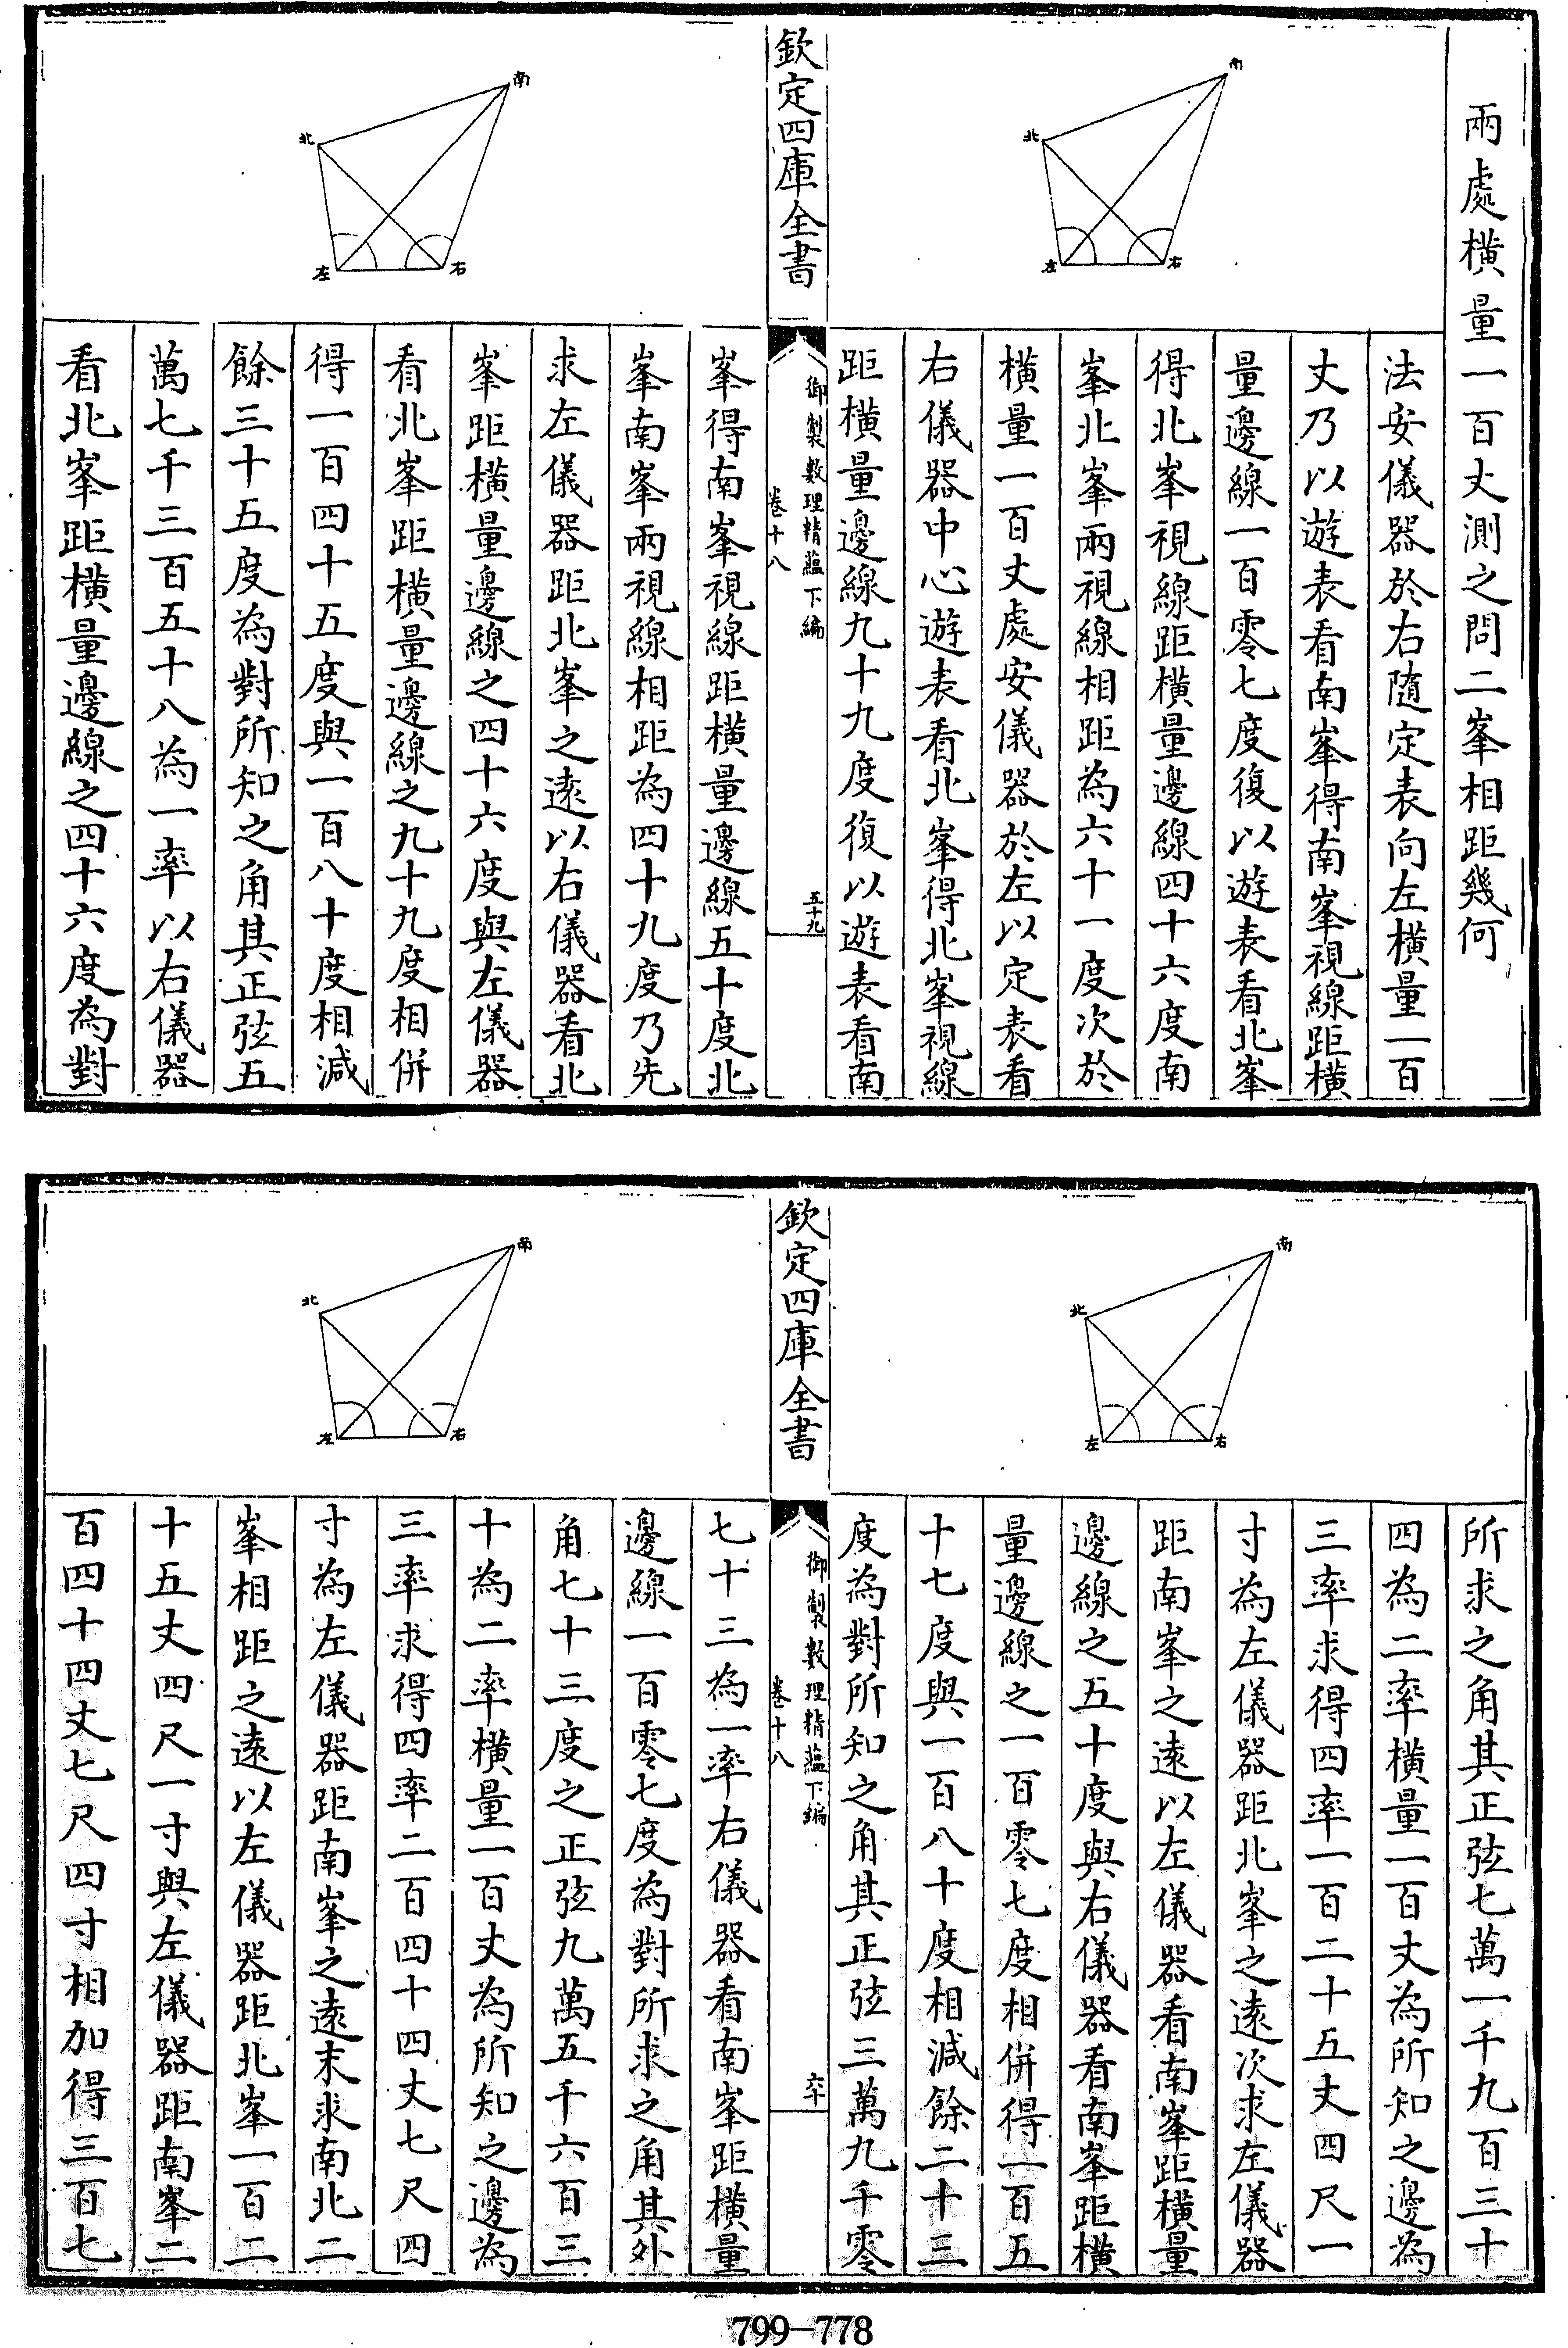 兩處橫量一百丈測之問二峯相距幾何
南
北
左
右
法安儀器於右隨定表向左橫量一百
丈乃以遊表看南峯得南峯視線距橫
量邊線一百零七度復以遊表看北峯
得北峯視線距橫量邊線四十六度南
峯北峯兩視線相距為六十一度次於
橫量一百丈處安儀器於左以定表看
右儀器中心遊表看北峯得北峯視線
距橫量邊線九十九度復以遊表看南
欽定四庫全書
御製數理精蘊下編
卷十八
五十九
南
北
左
右
峯得南峯視線距橫量邊線五十度北
峯南峯兩視線相距為四十九度乃先
求左儀器距北峯之遠以右儀器看北
峯距橫量邊線之四十六度與左儀器
看北峯距橫量邊線之九十九度相併
得一百四十五度與一百八十度相減
餘三十五度為對所知之角其正弦五
萬七千三百五十八為一率以右儀器
看北峯距橫量邊線之四十六度為對
南
北
左
右
所求之角其正弦七萬一千九百三十
四為二率橫量一百丈為所知之邊為
三率求得四率一百二十五丈四尺一
寸為左儀器距北峯之遠次求左儀器
距南峯之遠以左儀器看南峯距橫量
邊線之五十度與右儀器看南峯距橫
量邊線之一百零七度相併得一百五
十七度與一百八十度相減餘二十三
度為對所知之角其正弦三萬九千零
欽定四庫全書
御製數理精蘊下編
卷十八
六十
南
北
左
右
七十三為一率右儀器看南峯距橫量
邊線一百零七度為對所求之角其外
角七十三度之正弦九萬五千六百三
十為二率橫量一百丈為所知之邊為
三率求得四率二百四十四丈七尺四
寸為左儀器距南峯之遠末求南北二
峯相距之遠以左儀器距北峯一百二
十五丈四尺一寸與左儀器距南峯二
百四十四丈七尺四寸相加得三百七
799-778